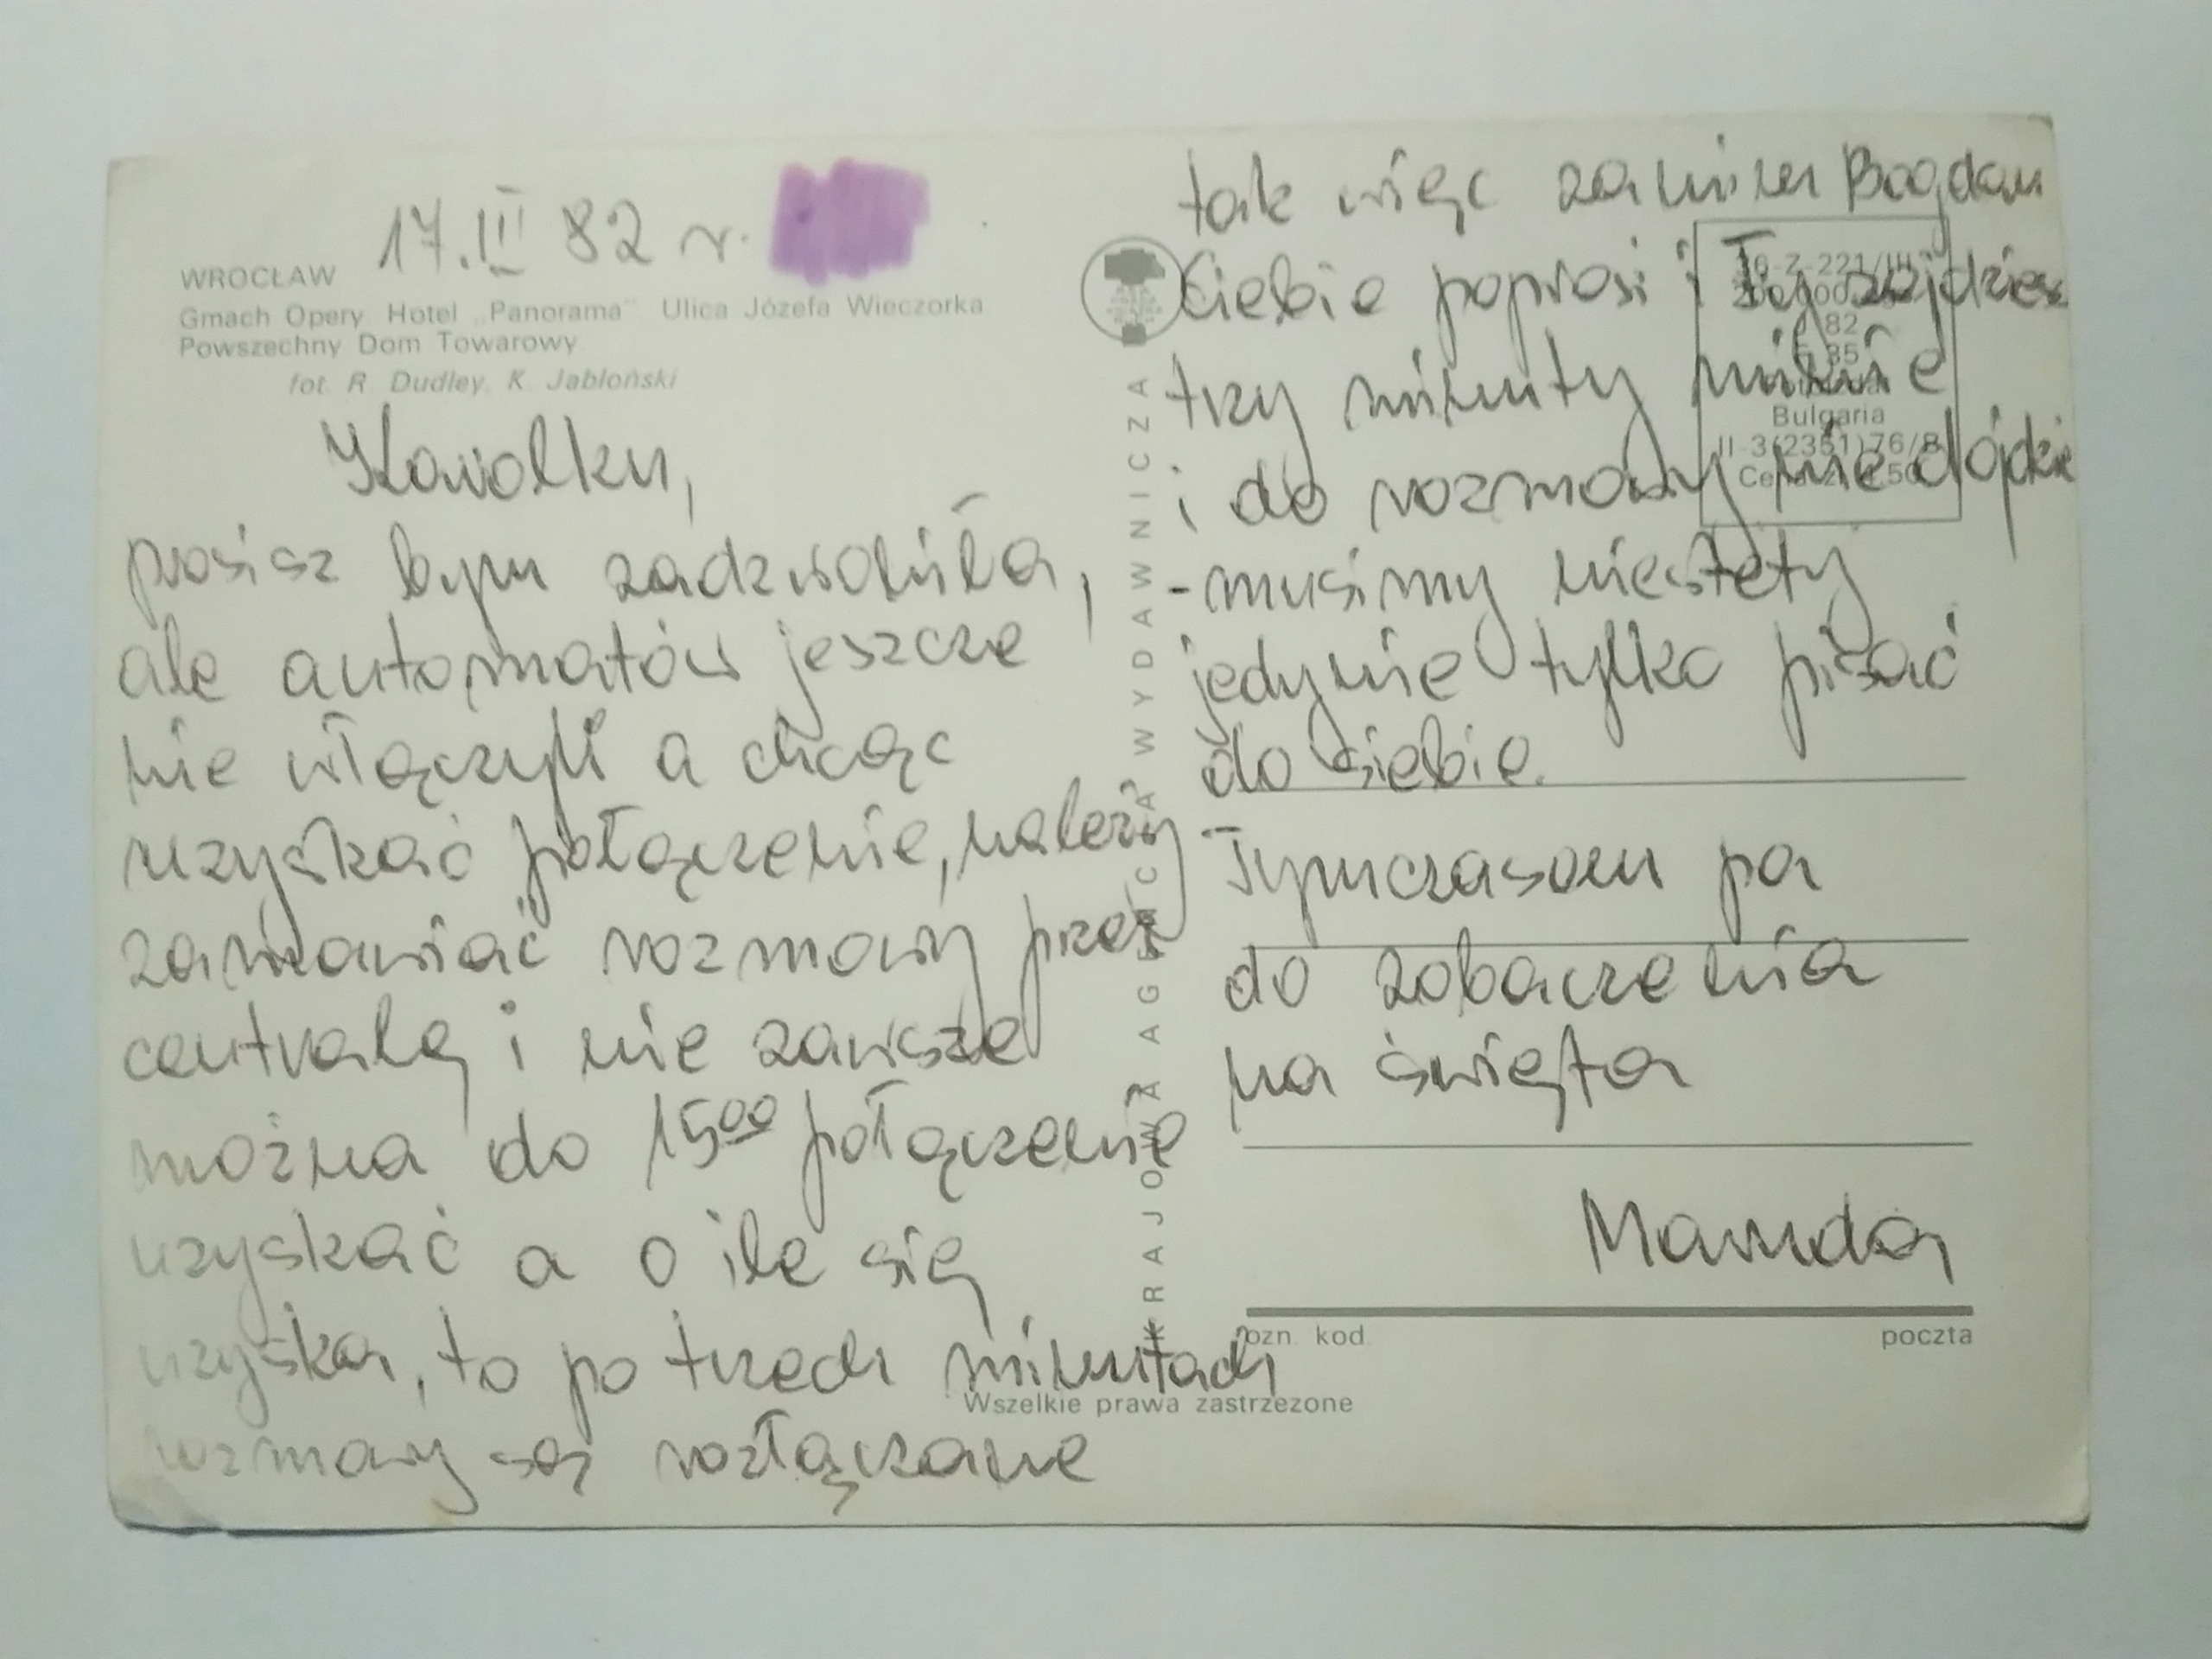 17.III 82 r.
WROCŁAW
Gmach Opery. Hotel „Panorama” Ulica Józefa Wieczorka
Powszechny Dom Towarowy
fot. R. Dudley, K. Jabłoński
Kowalku,
prosisz bym zadzwoniła,
ale automatów jeszcze
nie włączyli a chcąc
uzyskać połączenie, należy
zamawiać rozmowy przez
centralę i nie zawsze
można do 15⁰⁰ połączenie
uzyskać a o ile się
uzyska, to po trzech minutach
rozmowy są rozłączane
KRAJOWA AGENCJA WYDAWNICZA
tak więc zanim Bogdan
Ciebie poprosi i Ty zejdziesz
trzy minuty minie
i do rozmowy nie dojdzie
- musimy niestety
jedynie tylko pisać
do siebie.
Tymczasem pa
do zobaczenia
na święta
Wanda
36-Z-221/III
200.000
82
G 35
Bulgaria
II-3(2351)76/B
ozn. kod.
poczta
Wszelkie prawa zastrzeżone